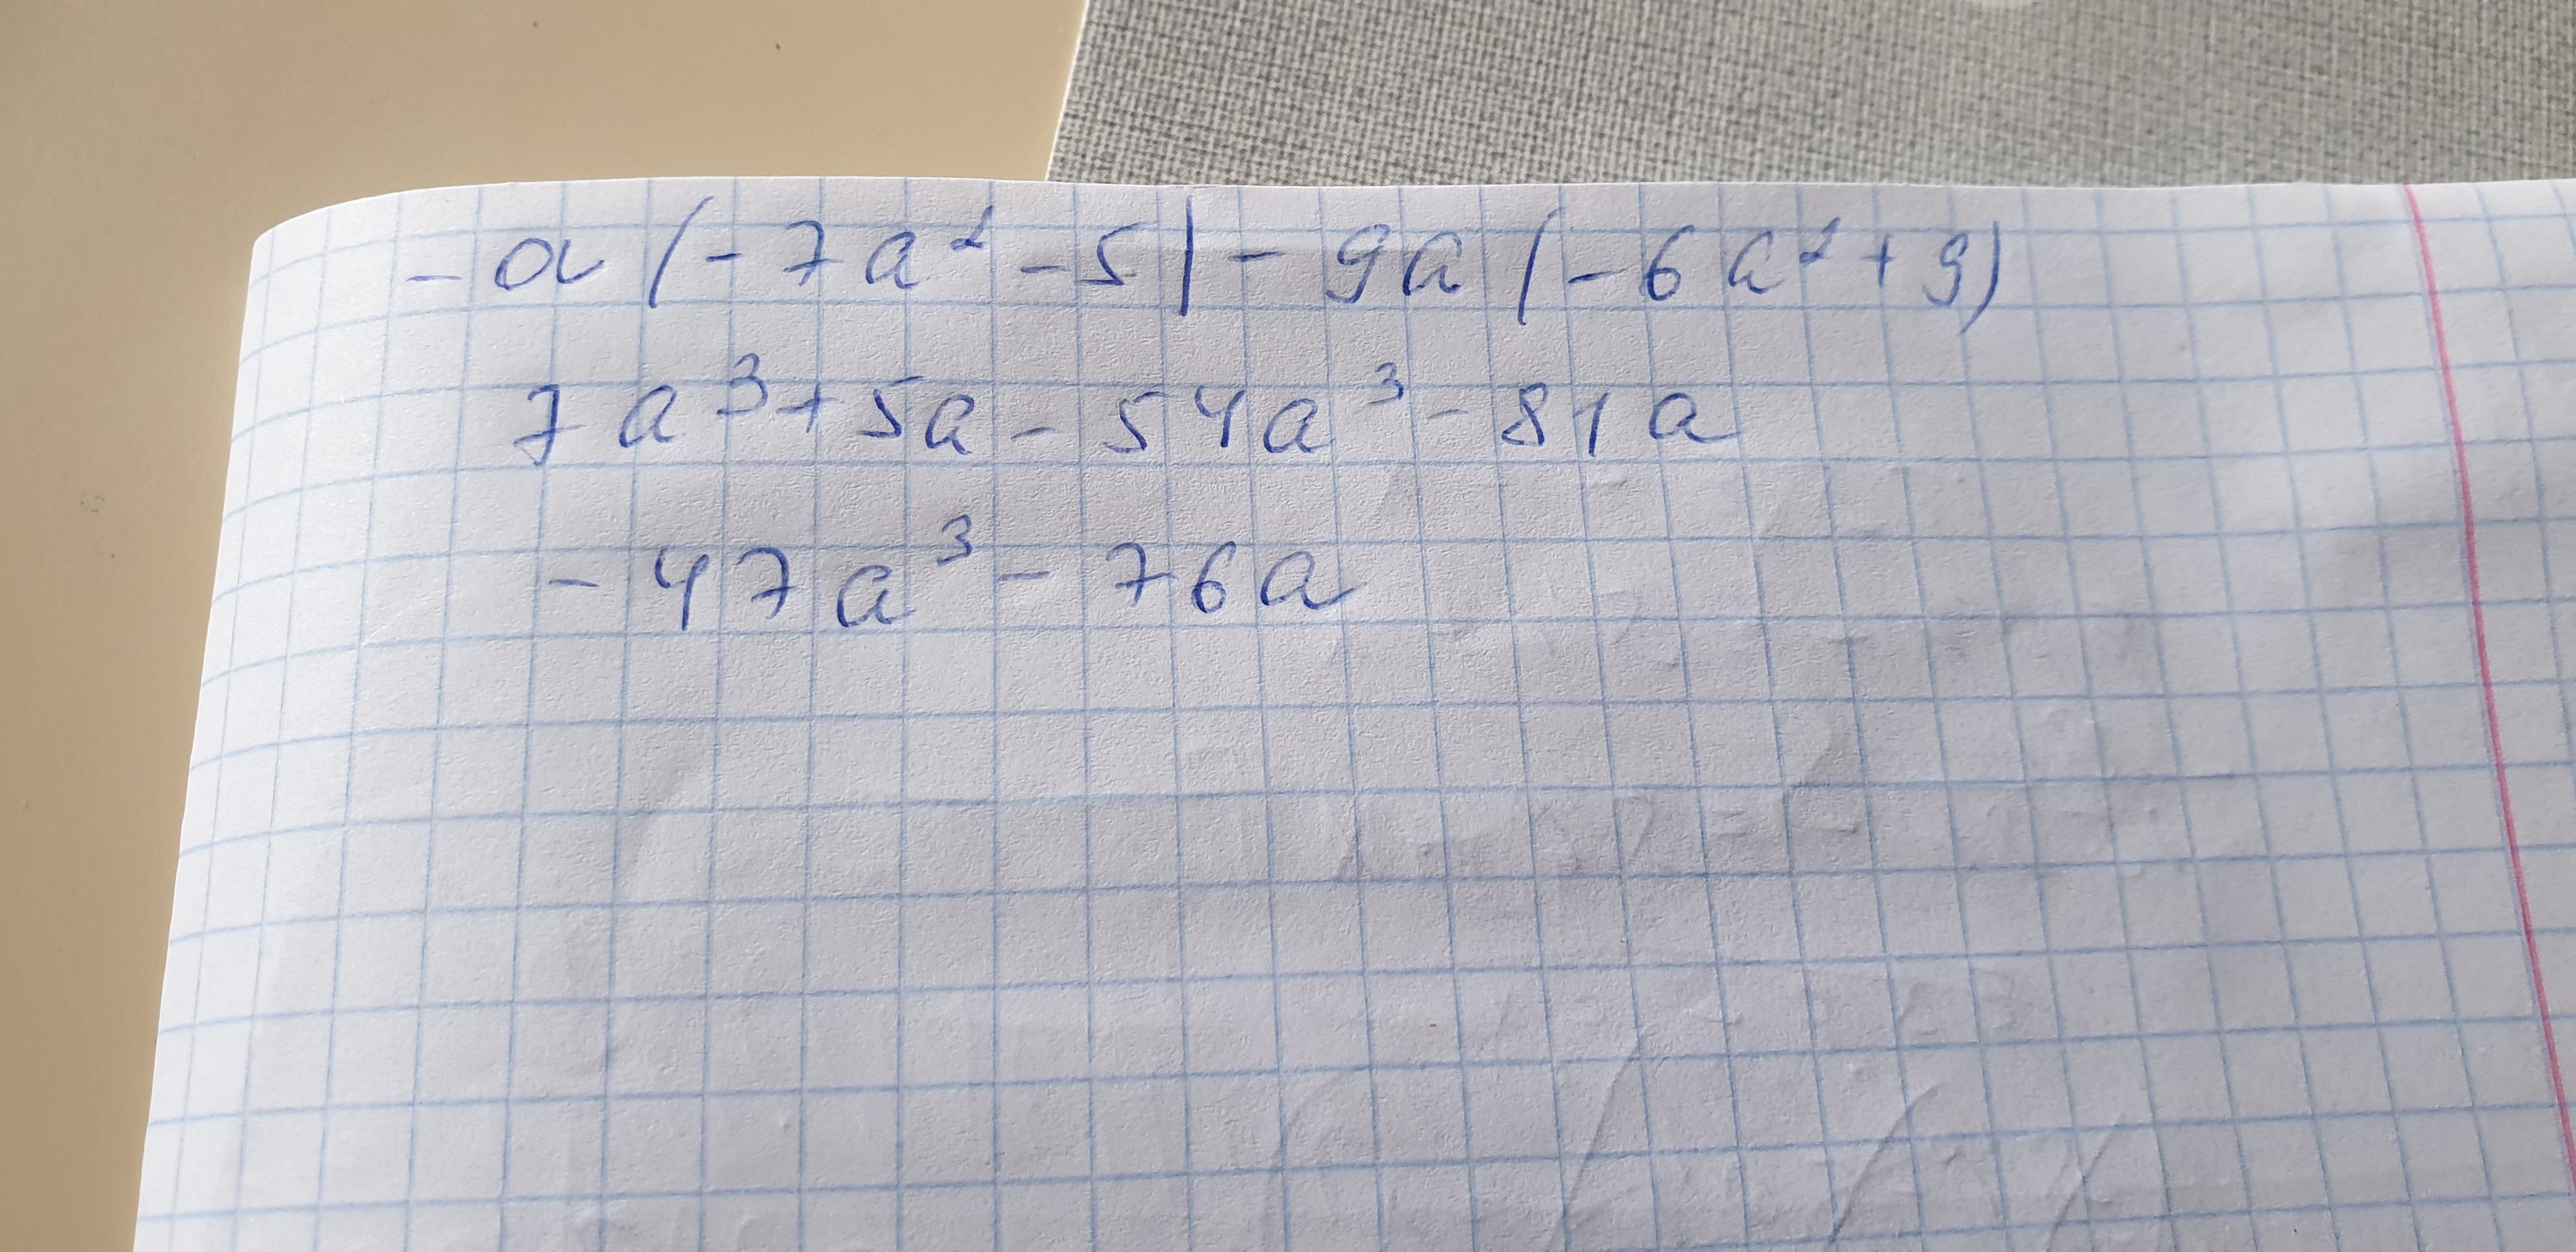 - a (-7a² - 5) - 9a (-6a² + 9)
7a³ + 5a - 54a³ - 81a
- 47a³ - 76a